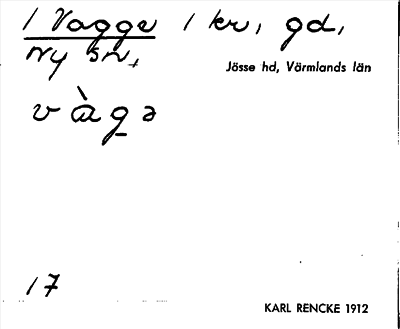 1 Vagge 1 kr, gd,
Ny sn,
Jösse hd, Värmlands län
v à g ə
17
KARL RENCKE 1912